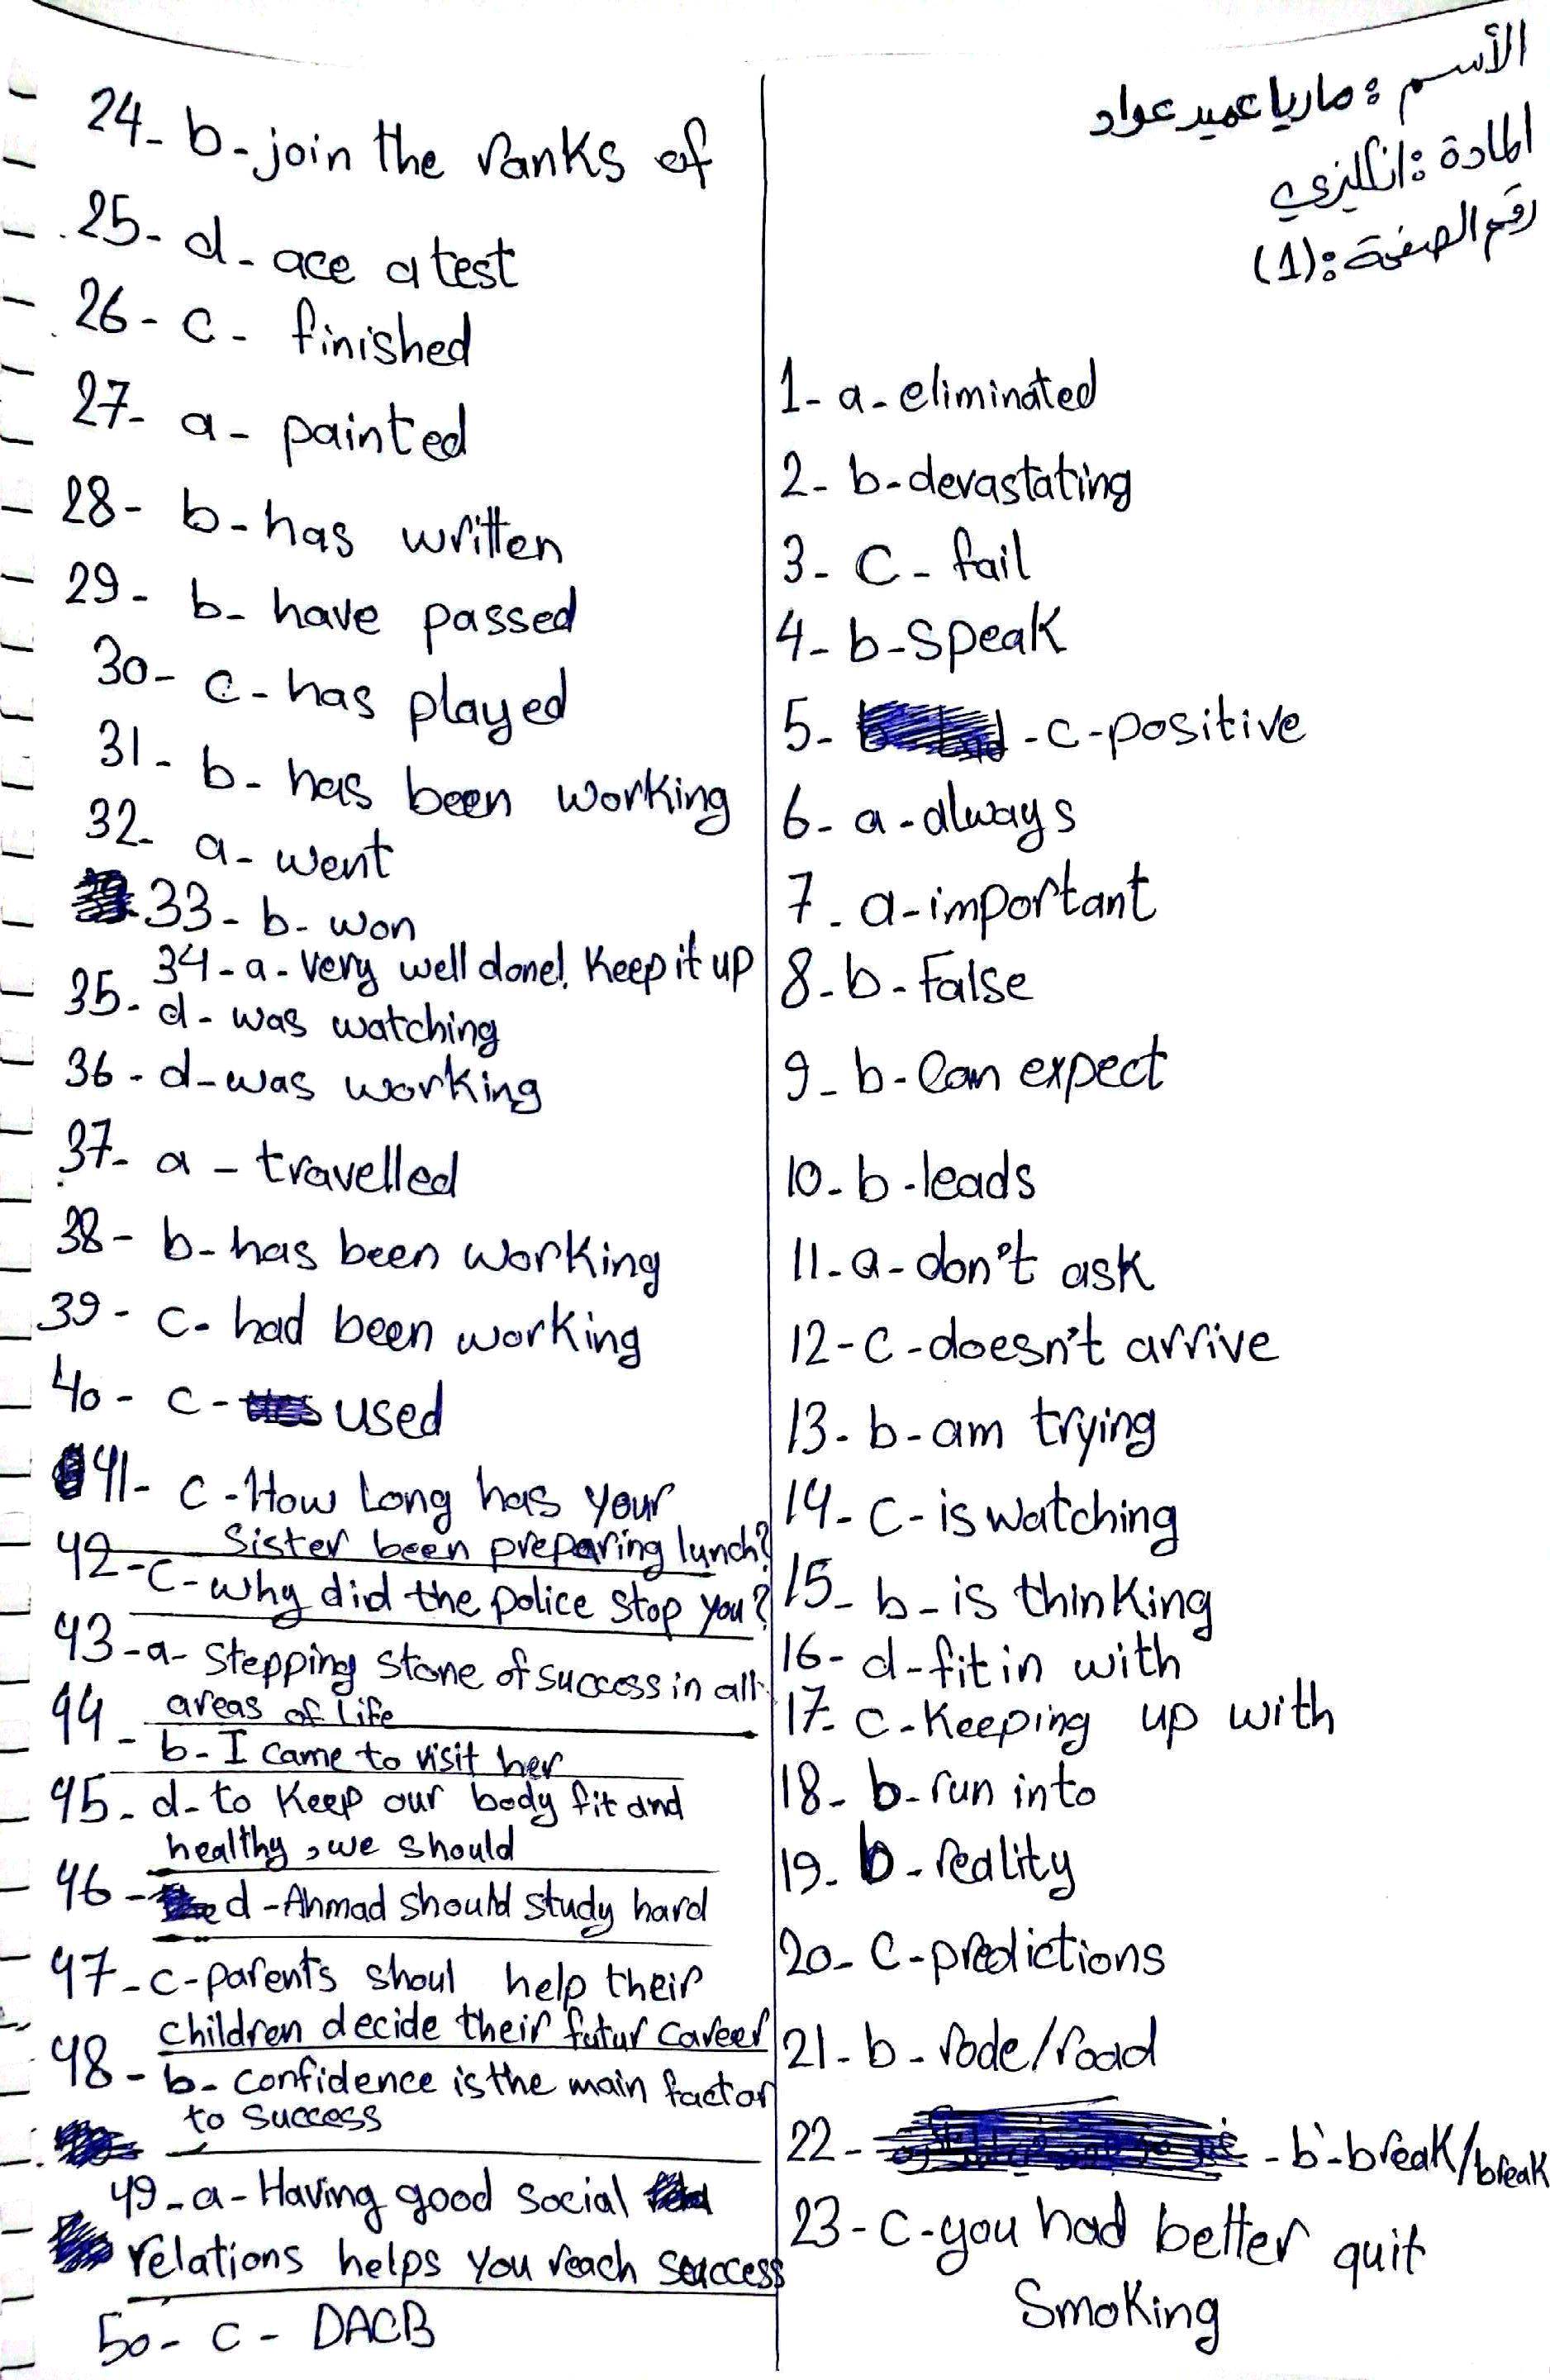 الأسم : ماريا عميد عواد
المادة : انكليزي
رقم الصفحة : (1)
1- a- eliminated
2- b- devastating
3- C- fail
4- b- speak
5- -c-positive
6- a-always
7- a-important
8- b- False
9- b- Can expect
10- b-leads
11- a- don't ask
12-c-doesn't arrive
13- b-am trying
14- c-is watching
15- b-is thinking
16- d-fit in with
17- c-Keeping up with
18- b-run into
19- b-reality
20- C-predictions
21- b- rode/road
22- -b-break/break
23-c-you had better quit
Smoking
24- b-join the ranks of
25- d- ace a test
26- c- finished
27- a- painted
28- b-has written
29- b- have passed
30- c-has played
31- b- has been working
32- a- went
33- b- won
34-a- very well done!. Keep it up
35- d- was watching
36- d-was working
37- a - travelled
38- b-has been working
39- c- had been working
40- c- used
41- c-How long has your
Sister been preparing lunch?
42-c-why did the police stop you?
43-a- stepping stone of success in all
areas of life
44- b-I came to visit her
45- d-to Keep our body fit and
healthy, we should
46- d-Ahmad should study hard
47-c-parents shoul help their
children decide their futur career
48-b-confidence is the main factor
to success
49-a-Having good social
relations helps you reach success
50- c- DACB